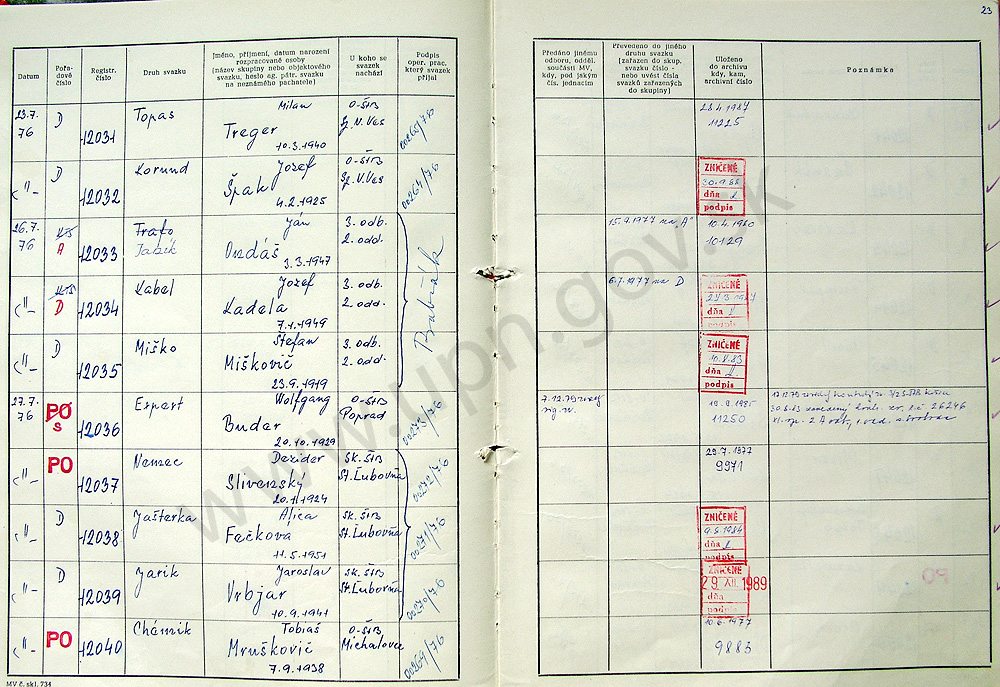 23
Datum
Pořa-
dové
číslo
Registr.
číslo
Druh svazku
Jméno, příjmení, datum narození
rozpracované osoby
(název skupiny nebo objektového
svazku, heslo ag. pátr. svazku
na neznámého pachatele)
U koho se
svazek
nachází
Podpis
oper. prac.
který svazek
přijal
Předáno jinému
odboru, odděl.
součásti MV,
kdy, pod jakým
čís. jednacím
Převedeno do jiného
druhu svazku
(zařazen do skup.
svazku číslo -
nebo uvést čísla
svazků zařazených
do skupiny)
Uloženo
do archivu
kdy, kam,
archivní číslo
Poznámka
23.7.
76
D
12031
Topas
Milan
Treger
10.3.1940
O-ŠtB
Sp. N. Ves
00265/76
23.4.1987
11225
-"-
D
12032
Korund
Jozef
Špak
4.2.1925
O-ŠtB
Sp. N. Ves
00264/76
ZNIČENÉ
dňa
podpis
26.7.
76
A
12033
Ján
Ondáš
3.3.1947
3. odb.
2. odd.
Babiak
15.9.1977 na „A"
10.4.1980
10129
-"-
D
12034
Kabel
Jozef
Kadela
7.1.1949
3. odb.
2. odd.
6.7.1977 na D
ZNIČENÉ
dňa
podpis
-"-
D
12035
Miško
Štefan
Miškovič
23.9.1919
3. odb.
2. odd.
ZNIČENÉ
10.8.83
dňa
podpis
27.7.
76
PO
s
12036
Expert
Wolfgang
Buder
20.10.1929
O-ŠtB
Poprad
00273/76
7.12.79
19.9.1985
11250
-"-
PO
12037
Nemec
Dezider
Slivenský
20.1.1924
Sk. ŠtB
St. Ľubovňa
00272/76
29.7.1977
9971
-"-
D
12038
Jašterka
Alica
Fečkova
11.5.1951
Sk. ŠtB
St. Ľubovňa
00271/76
ZNIČENÉ
9.5.1984
dňa
podpis
-"-
D
12039
Jarik
Jaroslav
Vrbjar
10.9.1941
Sk. ŠtB
St. Ľubovňa
00270/76
ZNIČENÉ
29. XII. 1989
dňa
podpis
-"-
PO
12040
Chámik
Tobiaš
Mruškovič
7.9.1938
O-ŠtB
Michalovce
00269/76
10.6.1977
9883
MV č. skl. 734
www.upn.gov.sk